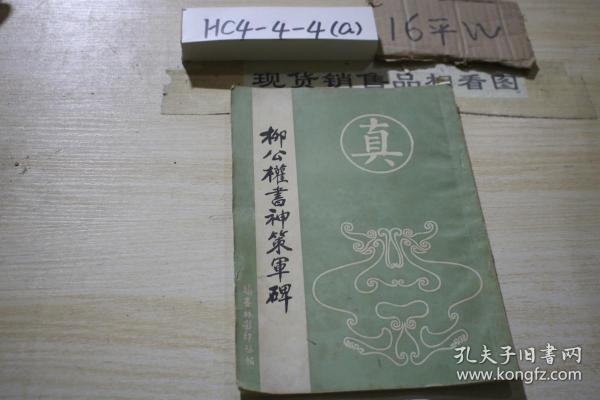 HC4-4-4(a)
16平W
现货销售品相看图
真
柳公權書神策軍碑
孔夫子旧书网
www.kongfz.com